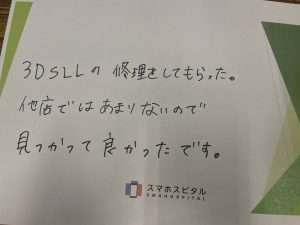 3DSLLの修理をしてもらった。
他店ではあまりないので
見つかって良かったです。
スマホスピタル
SMAHOSPITAL